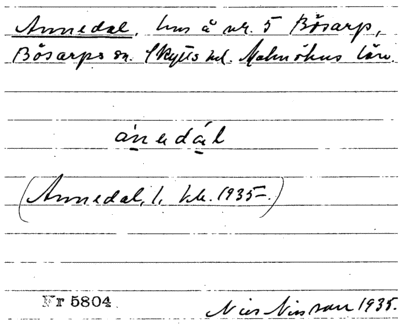 Annedal, hus å nr. 5 Bösarp,
Bösarps sn. Skytts hd. Malmöhus län.
ànedál
(Annedal, l. kk. 1935-.)
Nr 5804
Nils Nilsson 1935.